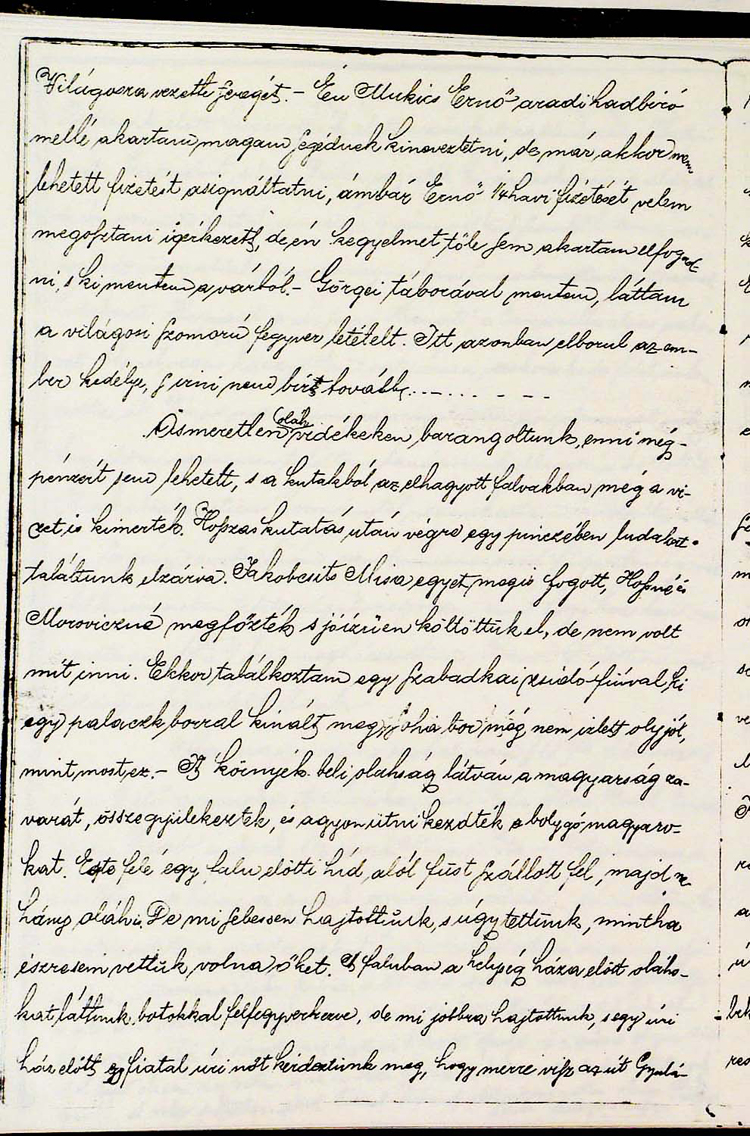 Világosra vezette seregét. – Én Mukics Ernő aradi hadbíró
mellé akartam magam segédnek kineveztetni, de már akkor nem
lehetett fizetést asignáltatni, ámbár Ernő 1/4 havi fizetését velem
megosztani igérkezett, de én kegyelmet tőle sem akartam elfogad-
ni, s kimentem a várból. – Görgei táborával mentem, láttam
a világosi szomorú fegyver letételt. Itt azonban elborul az em-
ber kedélye, s irni nem birt tovább. . . . . . . . .
Ösmeretlen oláh vidékeken barangoltunk, enni még
pénzért sem lehetett, s a kutakból az elhagyott falvakban még a vi-
zet is kimerték. Hosszas kutatás után végre egy pinczében ludakat
találtunk elzárva. Jakobcsits Misa egyet magis fogott, és
Moroviczné megfőzték s jóízűen költöttük el, de nem volt
mit inni. Ekkor találkoztam egy szabadkai zsidó fiúval, ki
egy palaczk borral kinált meg, soha bor még nem izlett olyjól,
mint most ez. – A környék beli oláhság látván a magyarság za-
varát, összegyülekeztek, és agyon ütni kezdték a bolygó magyaro-
kat. Este felé egy falu előtti híd alól füst szállott fel, majd né-
hány oláh is. De mi sebessen hajtottunk, s úgy tettünk, mintha
észresem vettük volna őket. A faluban a helység háza előtt oláho-
kat láttunk botokkal felfegyverkezve, de mi jobbra hajtottunk, s egy úri
ház előtt egy fiatal úri nőt kérdeztünk meg, hogy merre visz az út Gyulá-